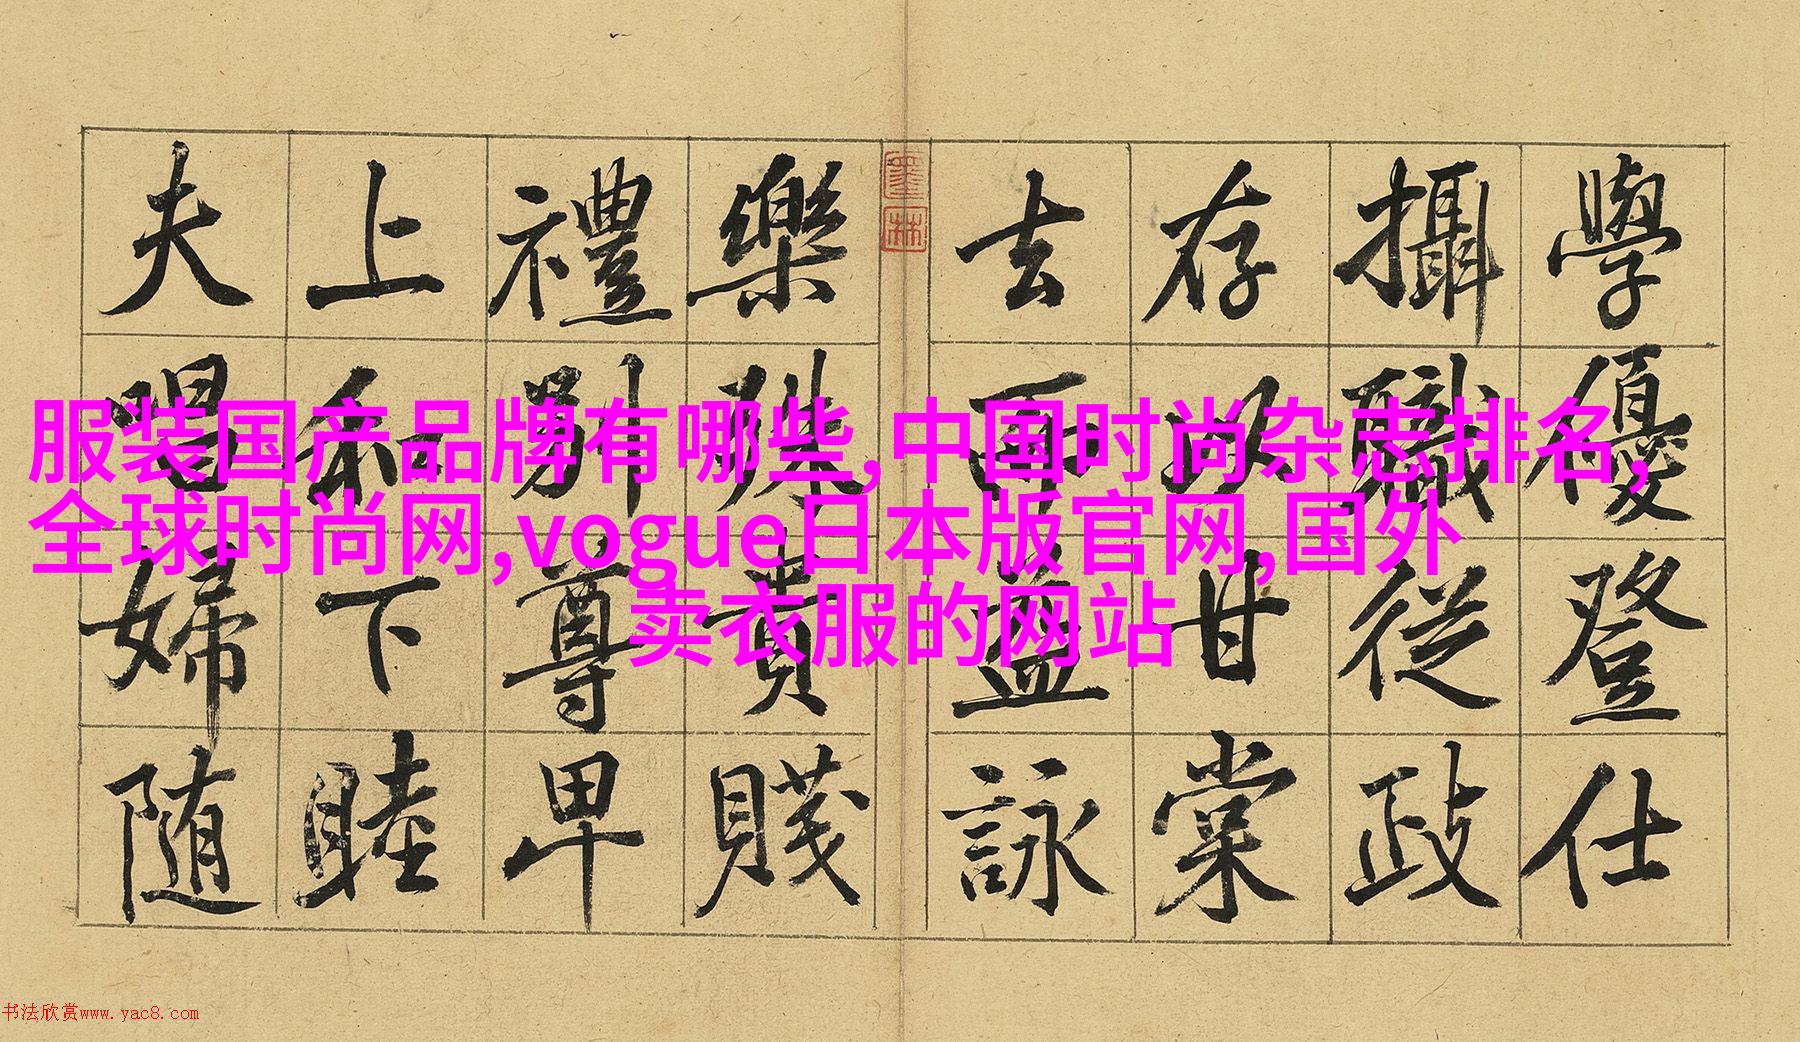 學優登仕
攝職從政
存以甘棠
去而益詠
墨林
樂殊貴賤
禮別尊卑
上和下睦
夫唱婦随
服装国产品牌有哪些,中国时尚杂志排名,
全球时尚网,vogue日本版官网,国外
卖衣服的网站
书法欣赏www.yac8.com